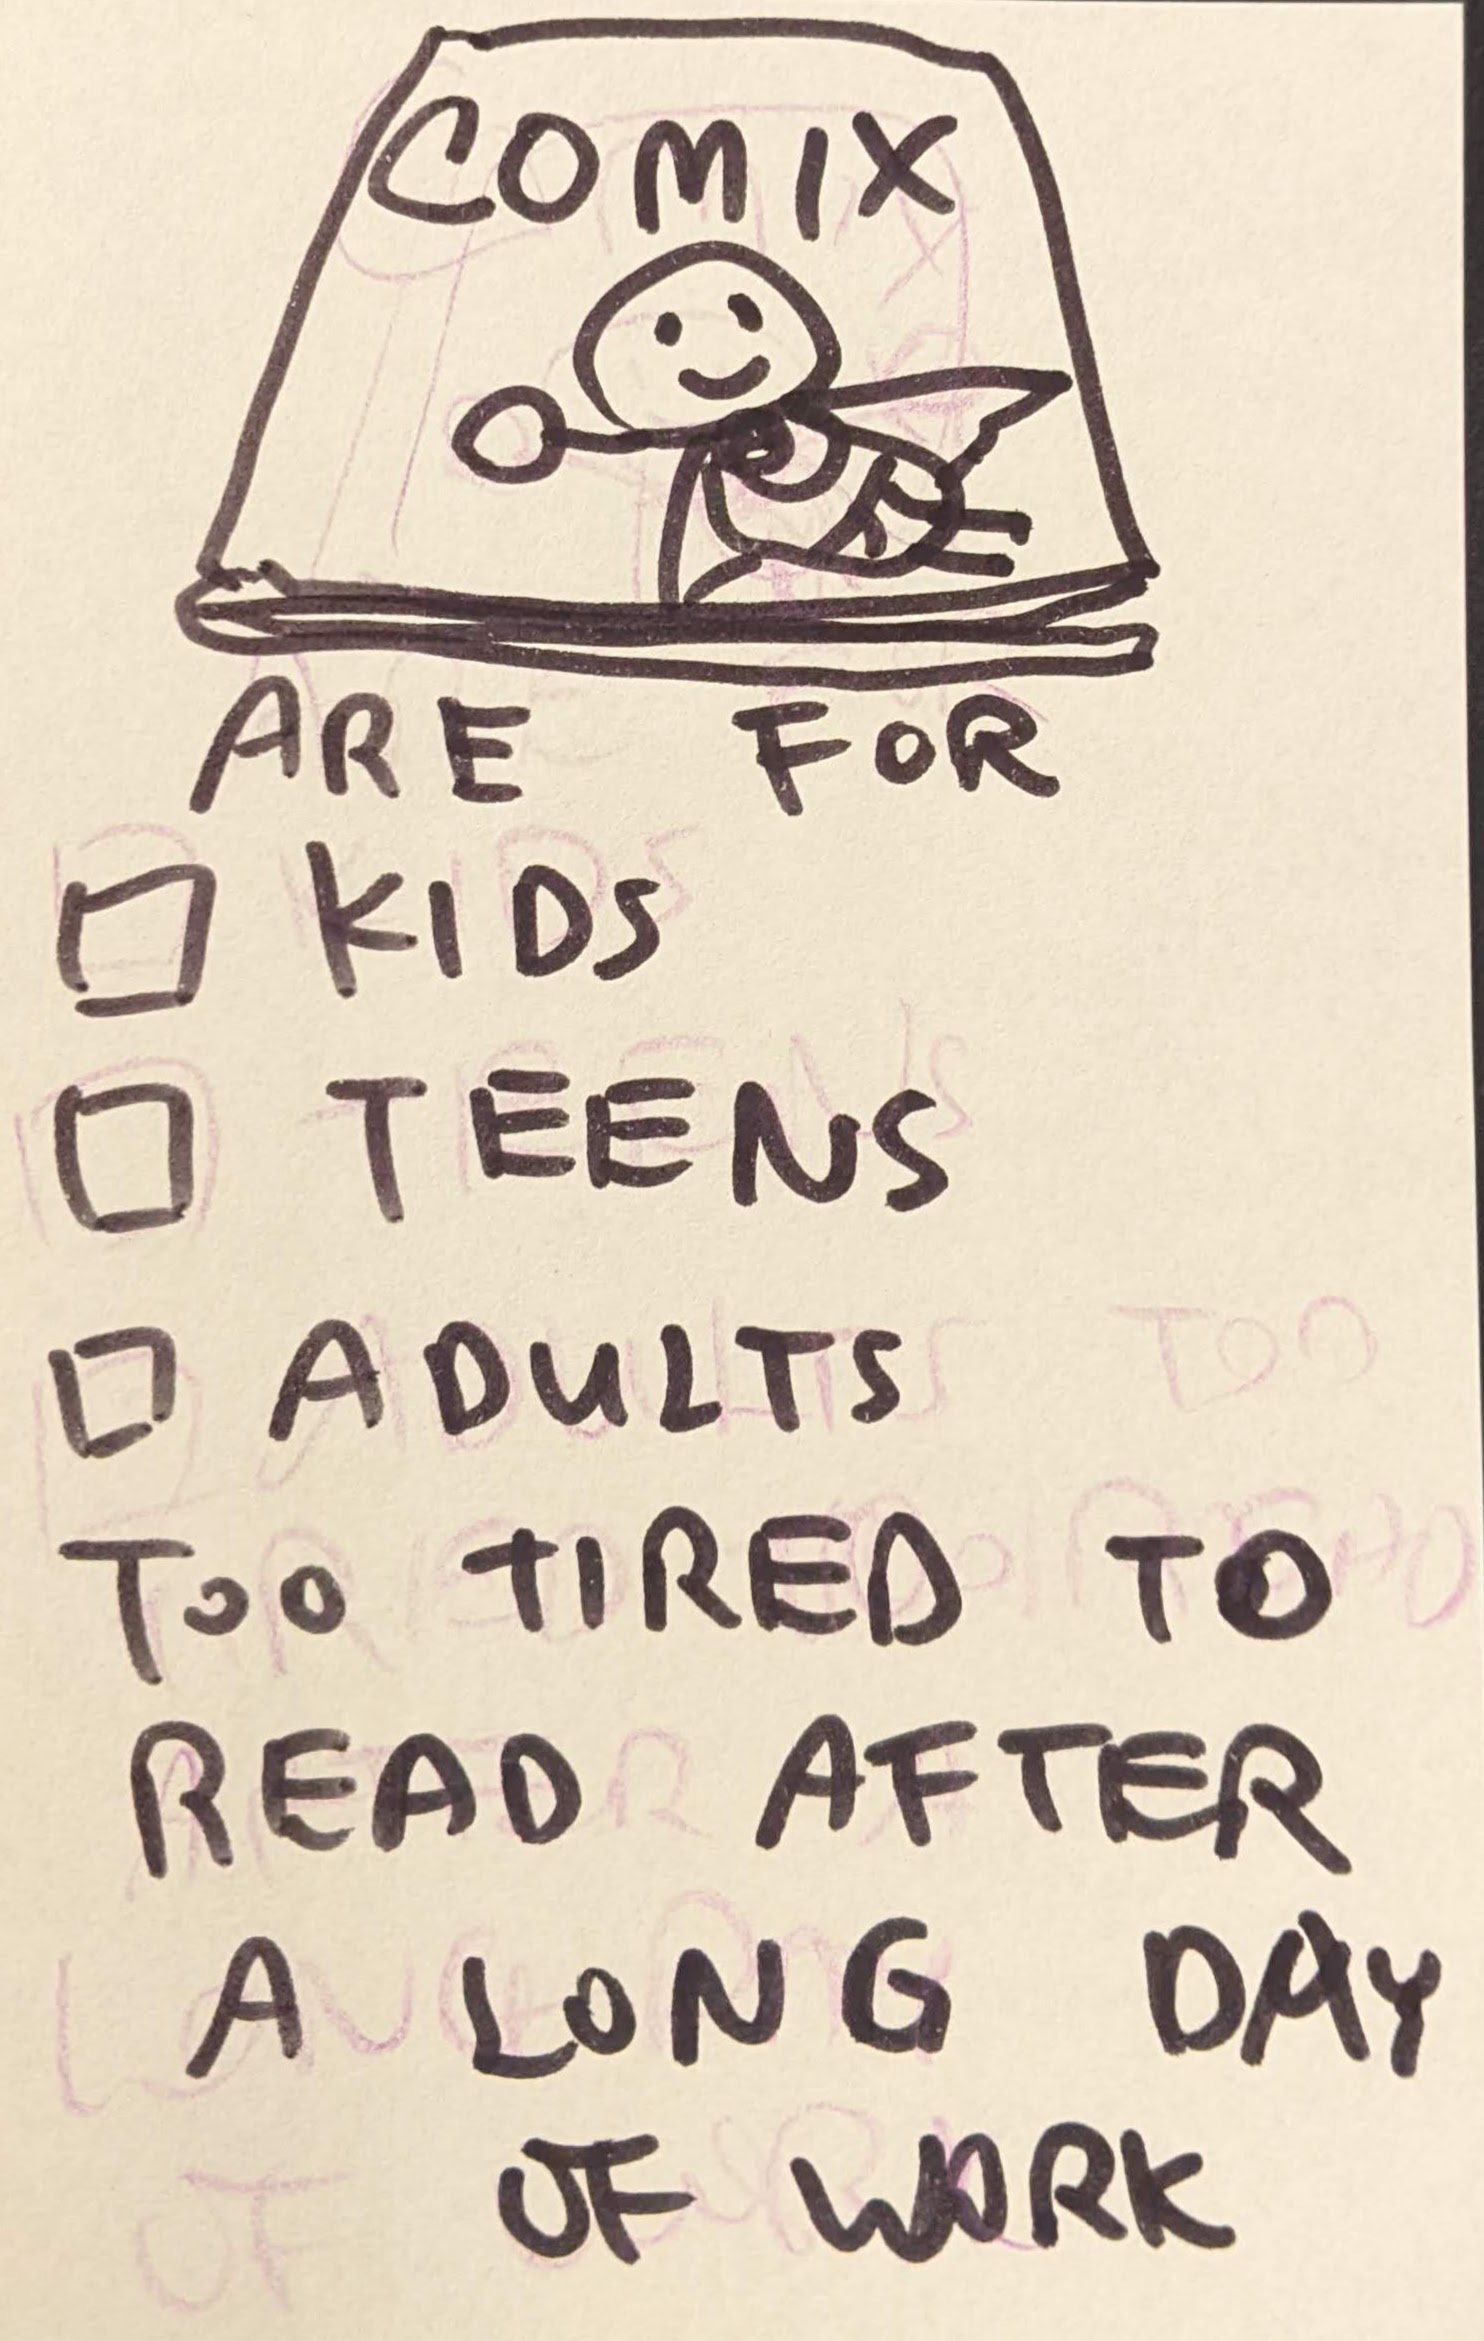 COMIX
ARE FOR
KIDS
TEENS
ADULTS
TOO TIRED TO
READ AFTER
A LONG DAY
OF WORK